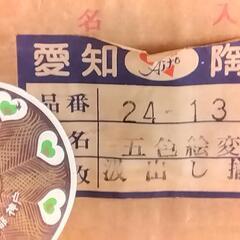 名 入
愛知 Aito 陶
品番 24-13
名 五色絵変
数 汲出し揃